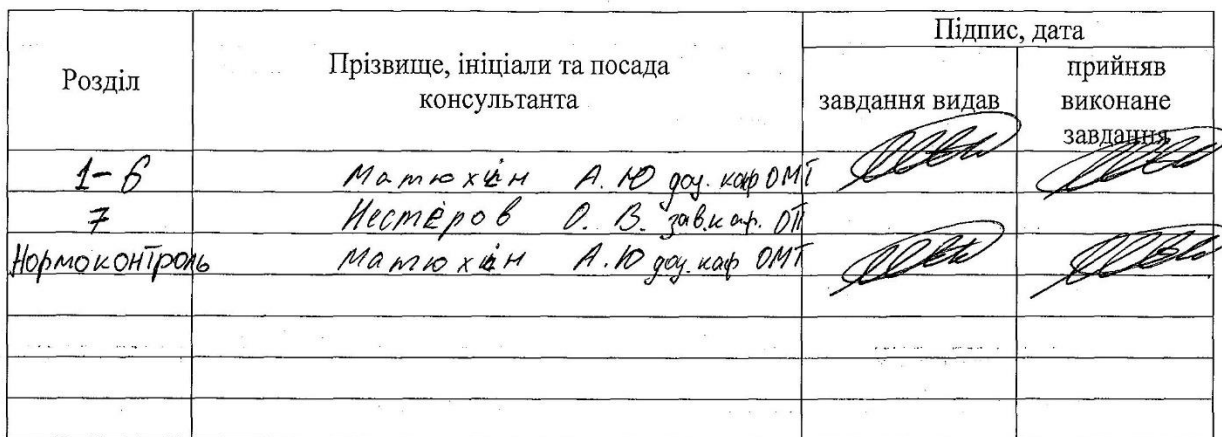 Підпис, дата
Розділ
Прізвище, ініціали та посада
консультанта
завдання видав
прийняв
виконане
завдання
1-6 Матюхін А. Ю доц. каф ОМТ
7 Нестеров О. В. зав.каф. ОП
Нормоконтроль Матюхін А. Ю доц. каф ОМТ